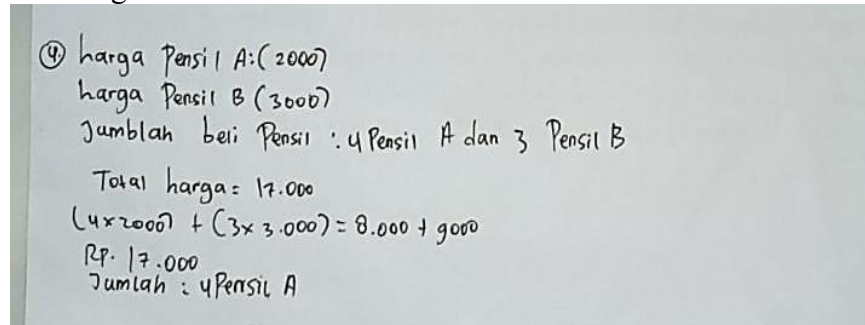 ④ harga Pensil A:(2000)
harga Pensil B (3000)
Jumblah beli Pensil : 4 Pensil A dan 3 Pensil B
Total harga = 17.000
(4x2000) + (3x 3.000) = 8.000 + 9000
Rp. 17.000
Jumlah : 4 Pensil A